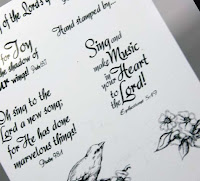 of the Lord's
Hand stamped by...
for Joy
the shadow of
ur wings!
Sing and
make Music
in your Heart
to the Lord!
Ephesians 5:19
Oh sing to the
Lord a new song;
for He has done
marvelous things!
Psalm 98:1